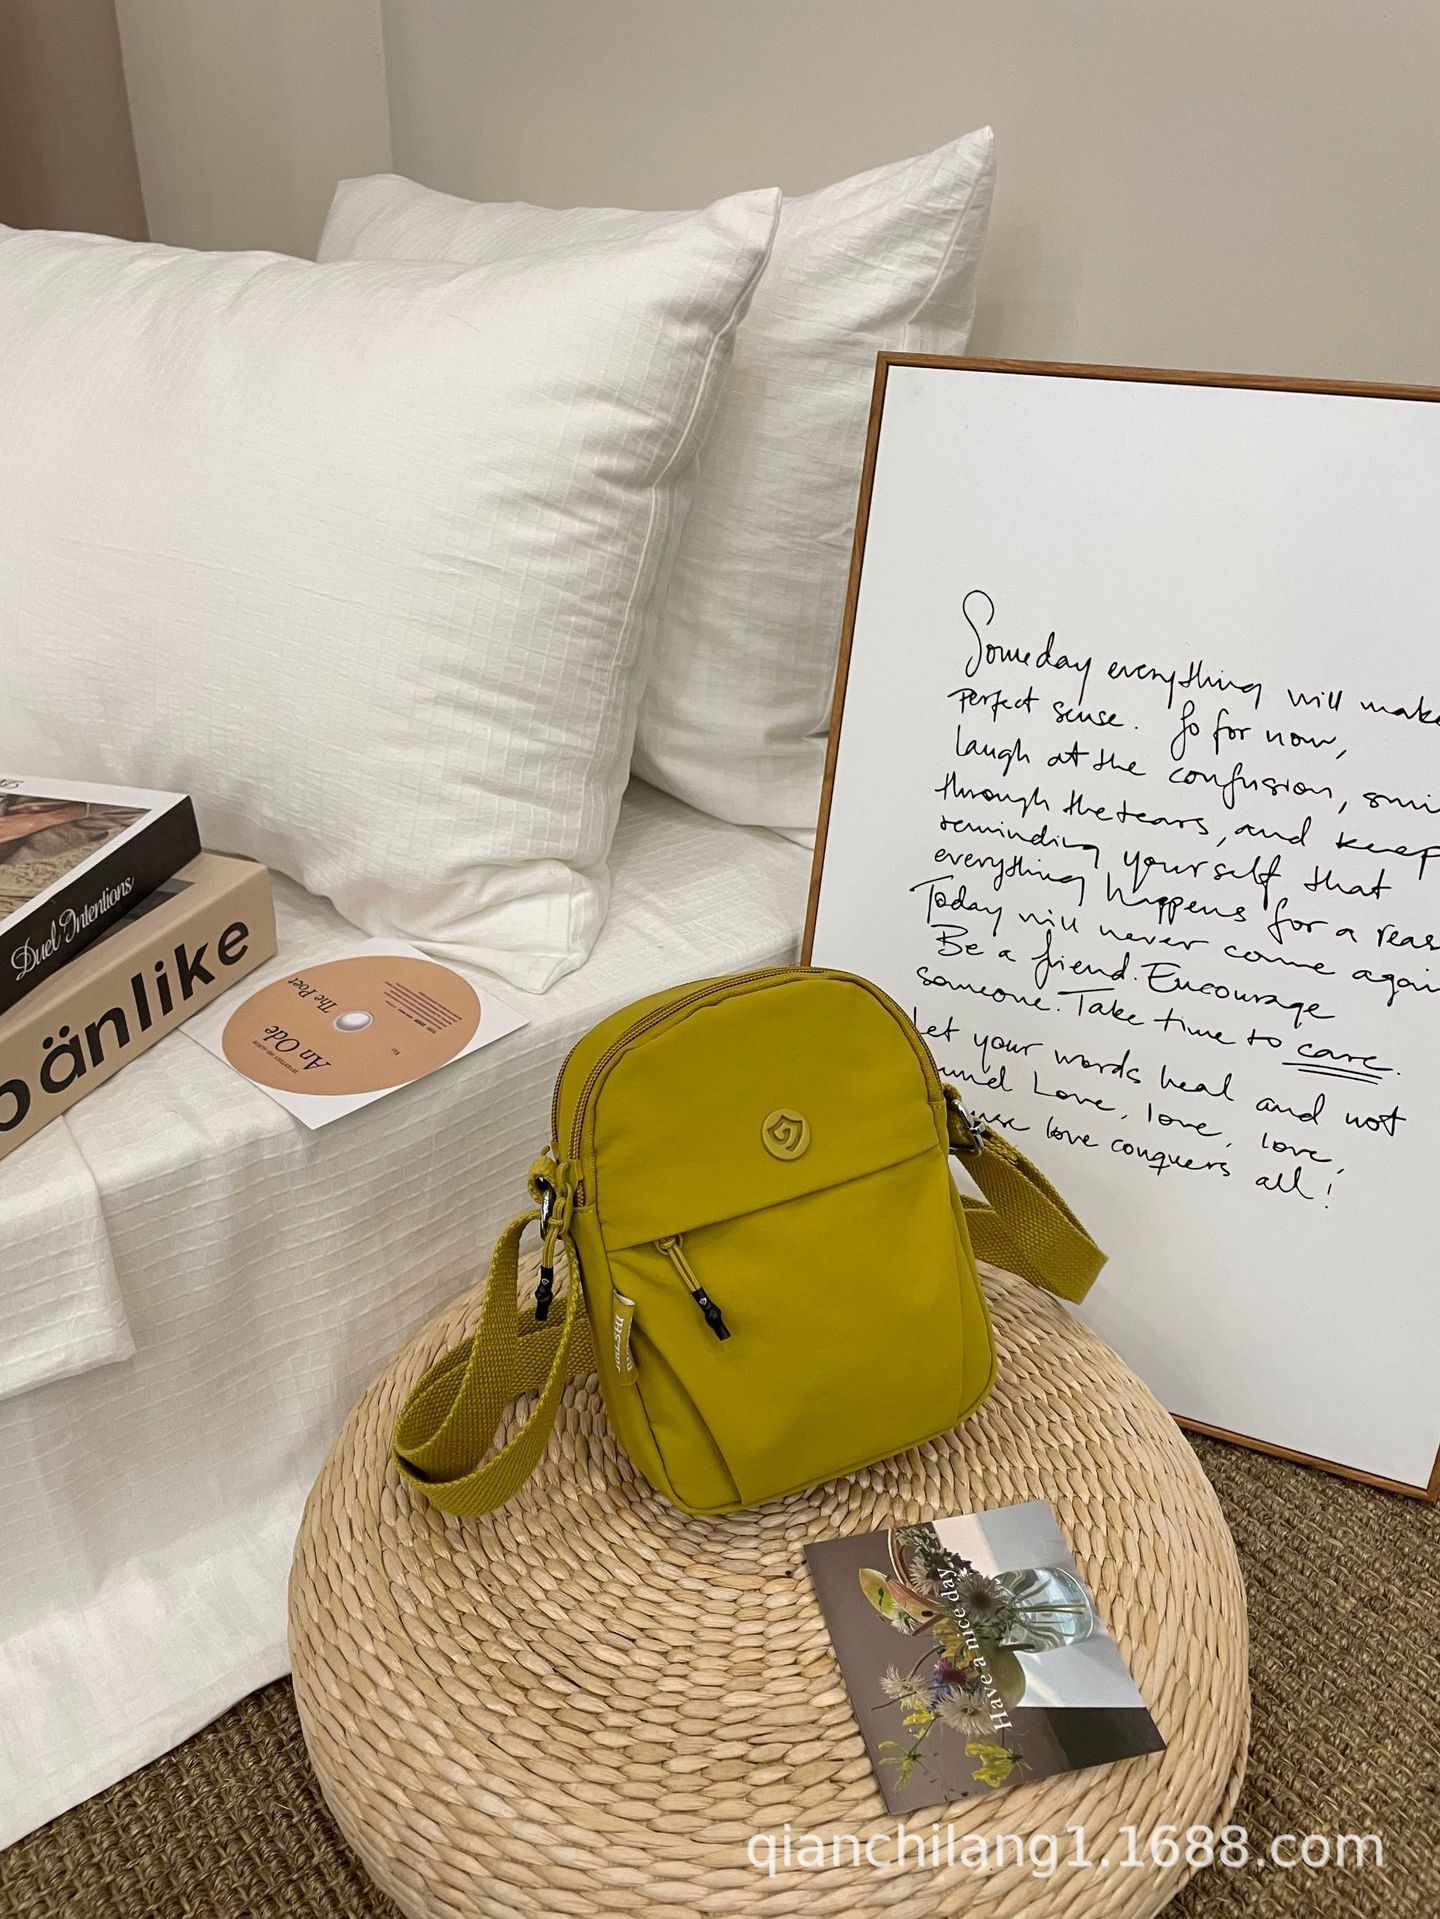 Someday everything will make
perfect sense. So for now,
laugh at the confusion, smi
through the tears, and keep
reminding yourself that
everything happens for a reas
Today will never come again
Be a friend. Encourage
someone. Take time to care.
Let your words heal and not
wound Love, love, love,
love conquers all!
Duel Intentions
bänlike
An Ode
The Poet
Ver.
Have a nice day
qianchilang1.1688.com